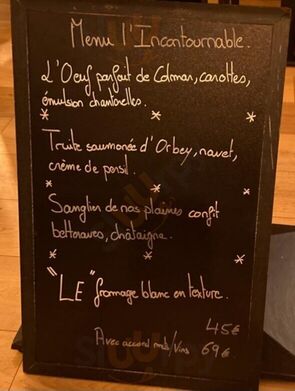 Menu l'Incontournable.
L'Oeuf parfait de Colmar, carottes,
émulsion chanterelles.
* * *
Truite saumonée d'Orbey, navet,
crème de persil.
* * *
Sanglier de nos plaines confit
betteraves, châtaigne.
* * *
"LE" fromage blanc en texture.
45€
Avec accord mets/vins 69€